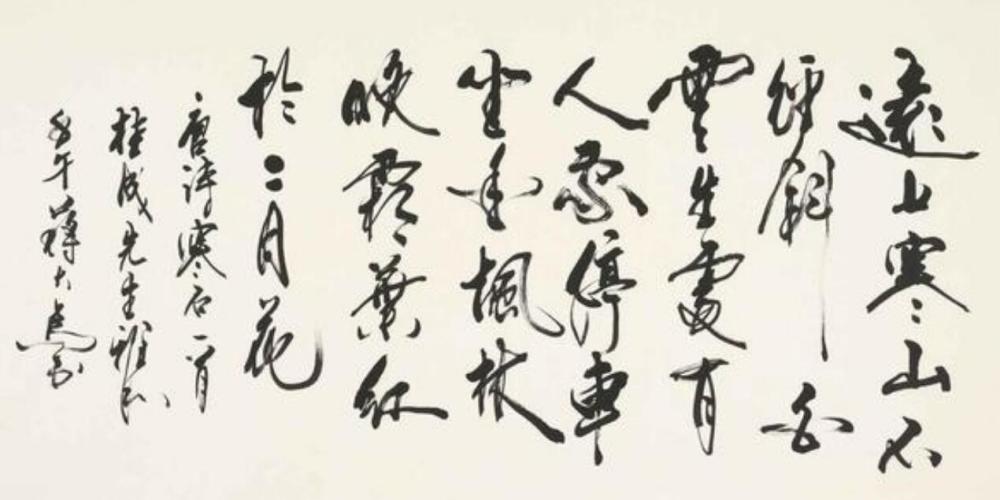 遠上寒山石
徑斜白
雲生處有
人家停車
坐愛楓林
晚霜葉紅
於二月花
唐詩寒石一首
桂成先生雅正
午蔣大書